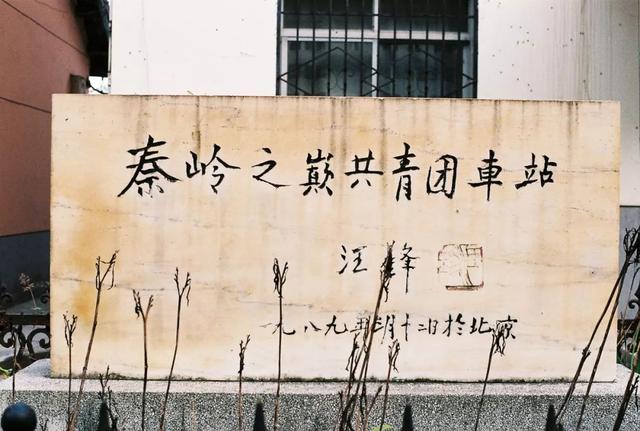 秦岭之巅共青团車站
汪锋
一九八九年三月十二日於北京